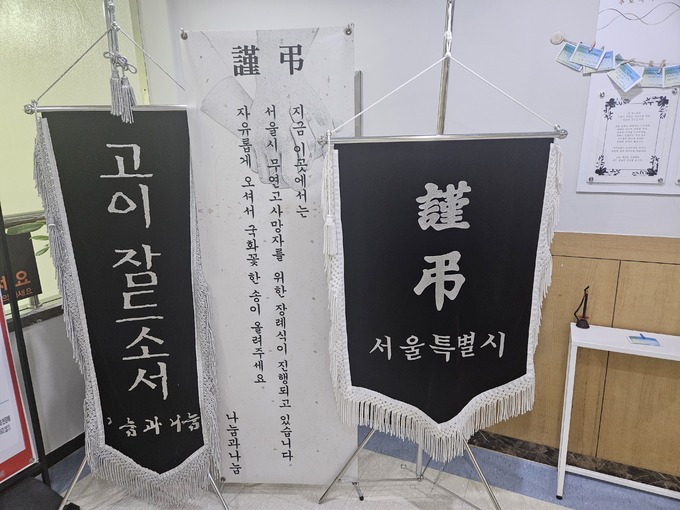 고이 잠드소서
나눔과나눔
謹弔
지금 이곳에서는
서울시 무연고사망자를 위한 장례식이 진행되고 있습니다
자유롭게 오셔서 국화꽃 한 송이 올려주세요
나눔과나눔
謹弔
서울특별시